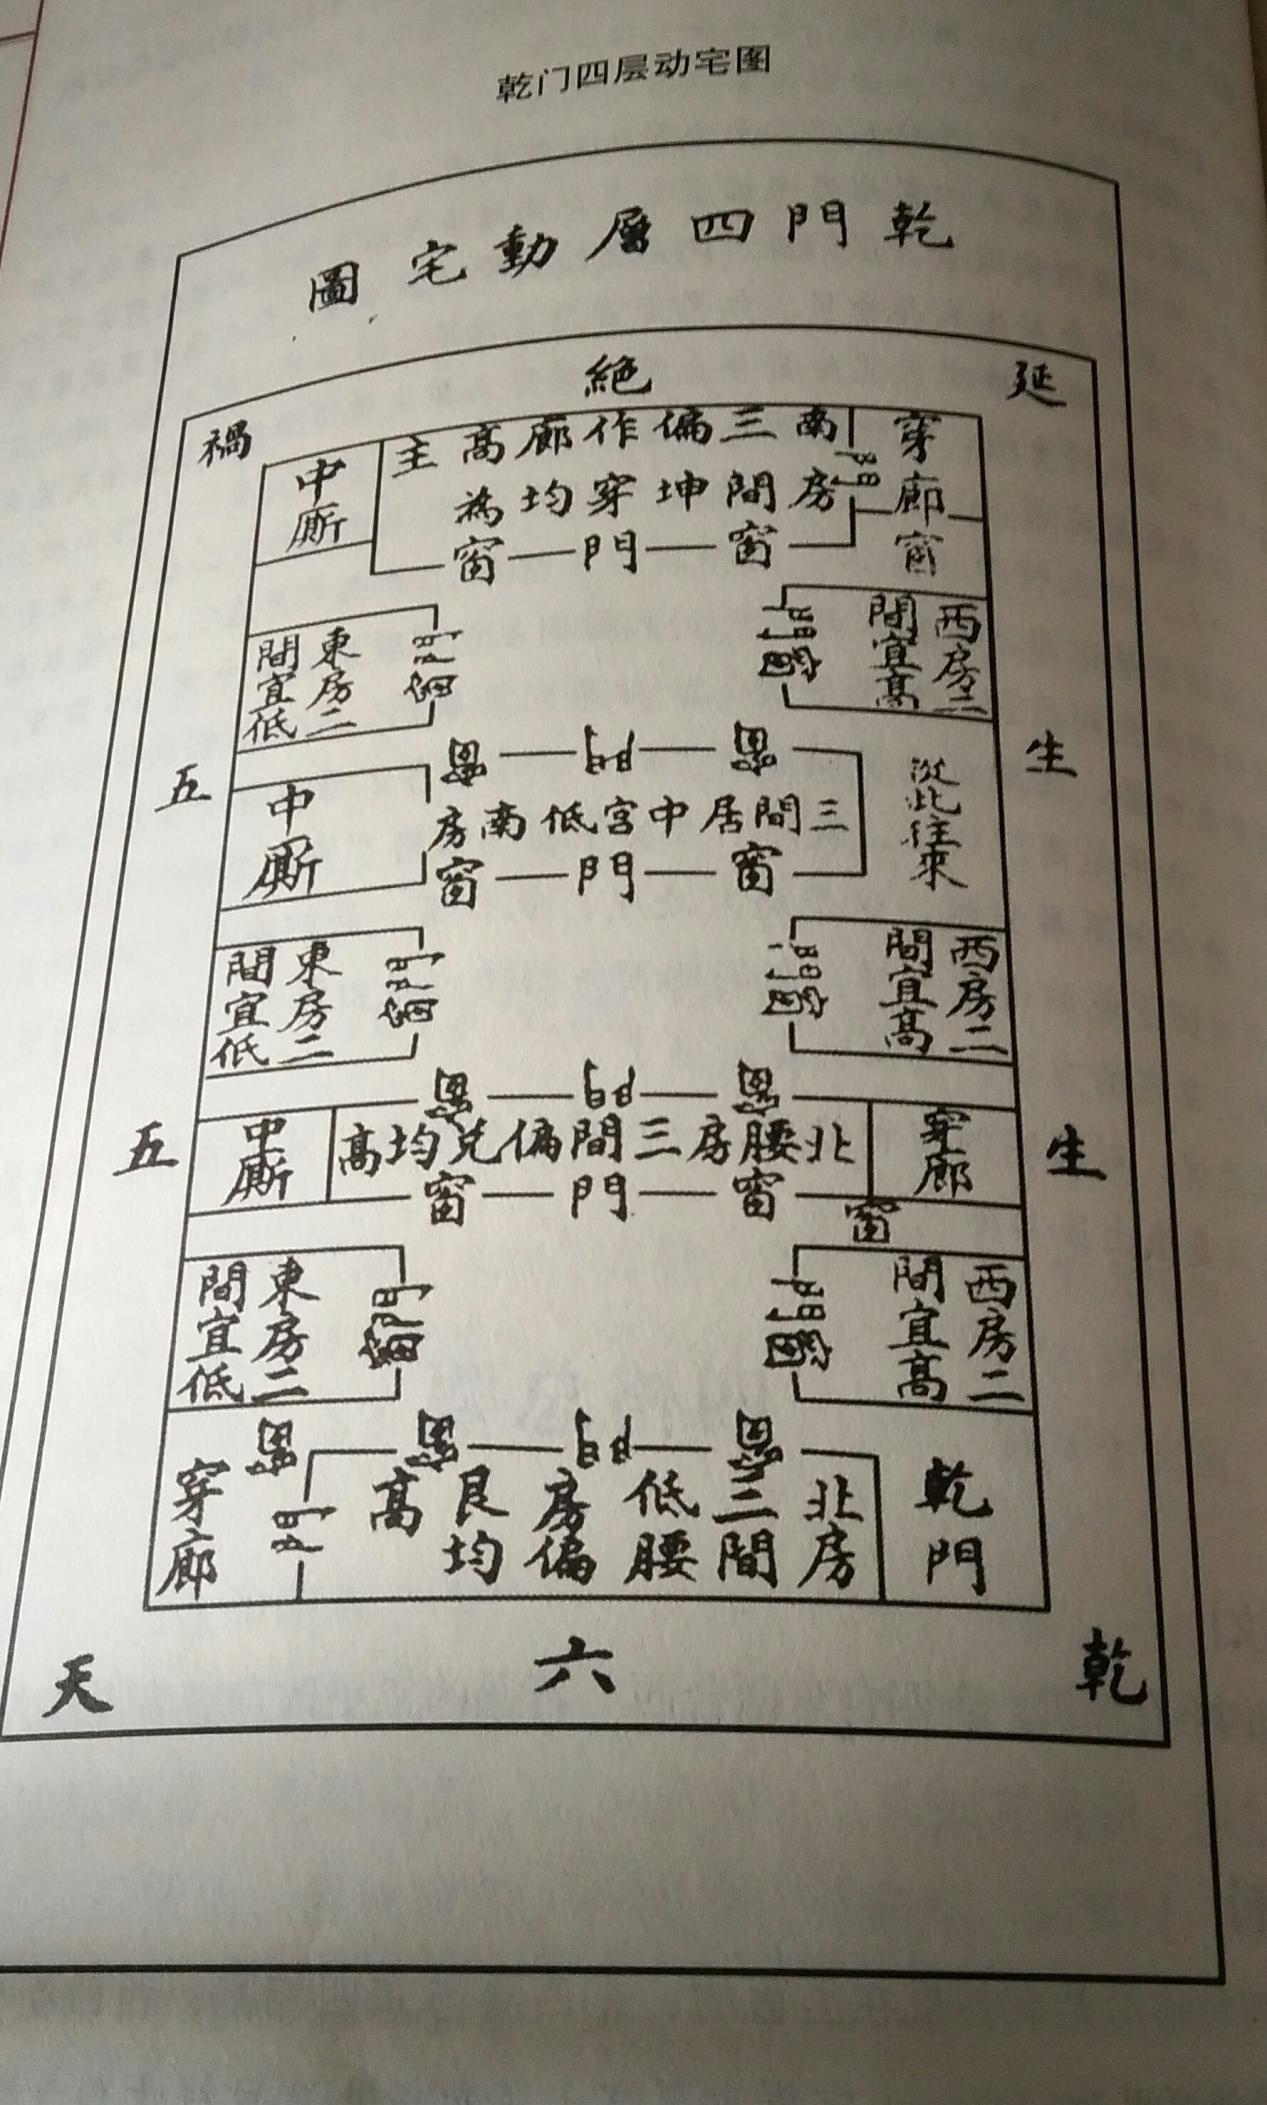 乾门四层动宅图
乾門四層動宅圖
延
絕
禍
穿廊
窗
門
南房三間偏坤作穿廊均高為主
中廝
窗 門 窗
西房二間宜高
門窗
東房二間宜低
門窗
生
五
窗 門 窗
從此往來
三間居中宮低南房
中廝
窗 門 窗
西房二間宜高
門窗
東房二間宜低
門窗
窗 門 窗
生
穿廊
北腰房三間偏兌均高
中廝
五
窗 門 窗
窗
西房二間宜高
門窗
東房二間宜低
門窗
窗 門 窗 窗
乾門
北房三間低腰房偏艮均高
門
穿廊
乾
六
天